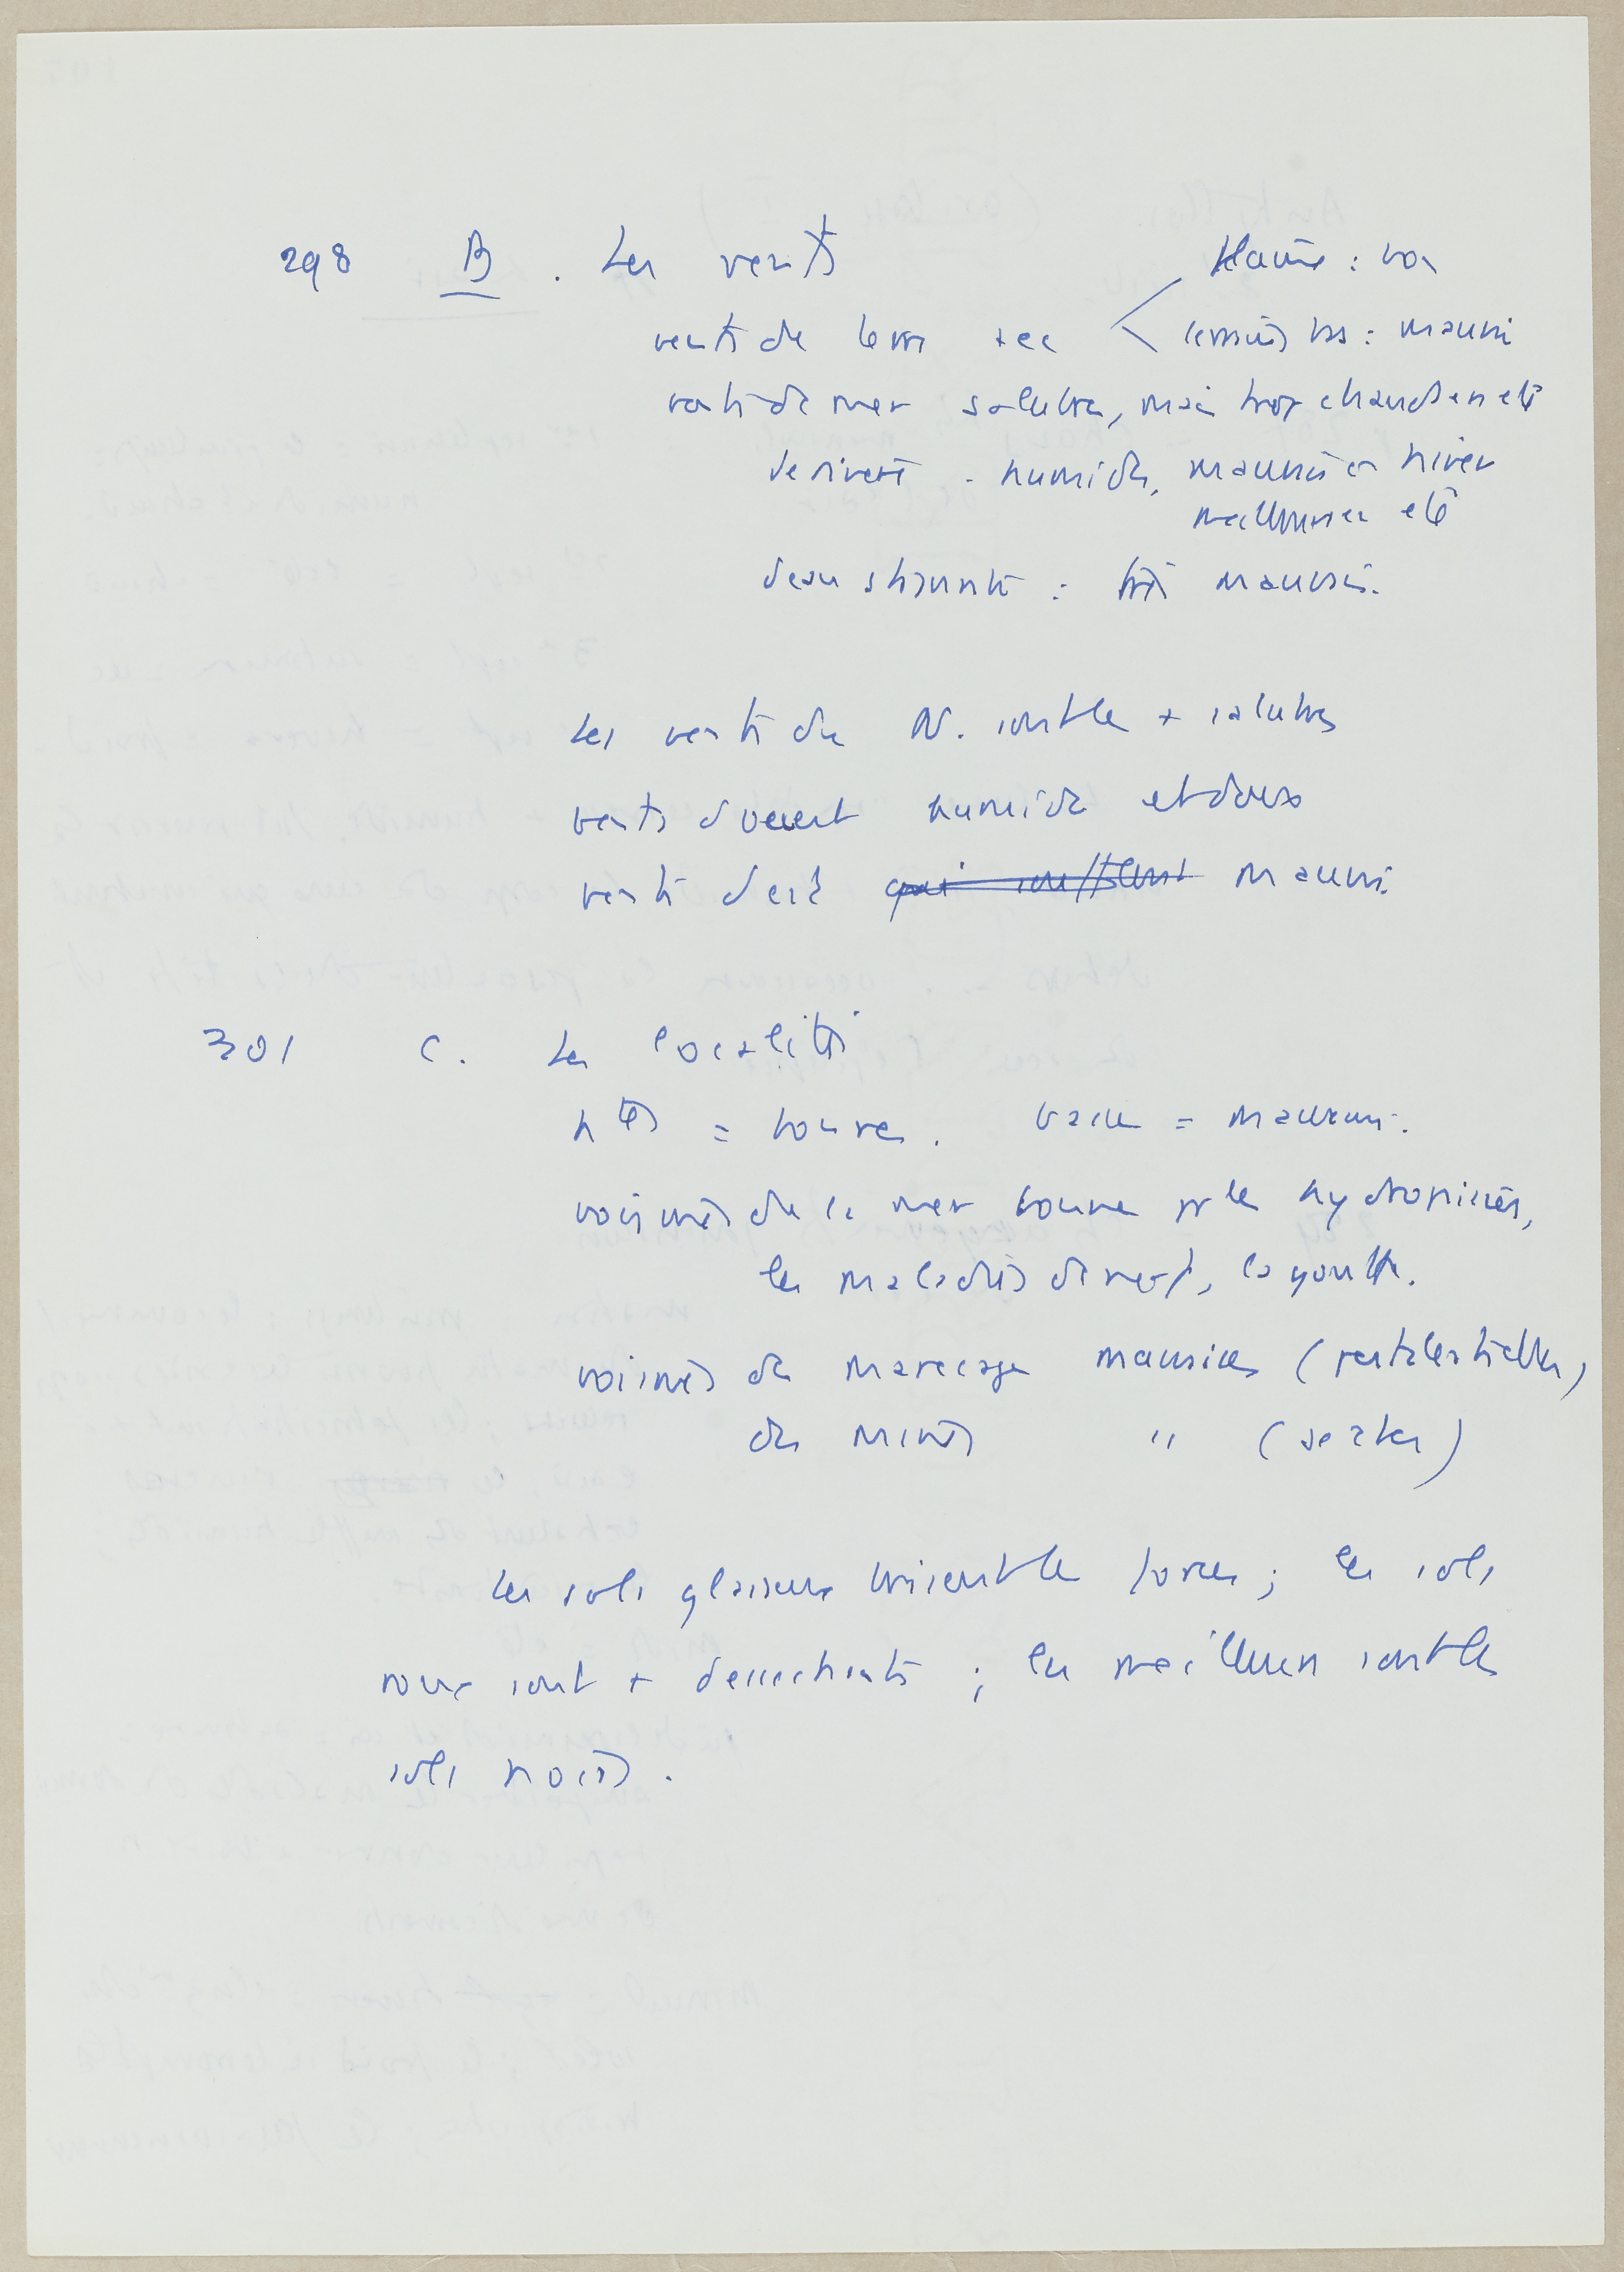 298 B. Les vents
Hauts : bon
vents de terre sec < terrains bas : mauvais
vents de mer salubres, mais trop chauds en été
de rivière . humides, mauvais en hiver
meilleurs en été
d'eau stagnante : très mauvais.
Les vents du N. sont les + salubres
vents d'ouest humides et doux
vents d'est qui soufflent mauvais.
301 C. Les localités
htes = bonnes. basses = mauvaises.
voisinages de la mer bonnes pr les hydropisies,
les maladies de nerfs, la goutte.
voisinages de marecages mauvaises (pestilentielles)
des mines " (sèches)
Les sols glaiseux brisent les forces ; les sols
roux sont + dessechants ; les meilleurs sont les
sols noirs.